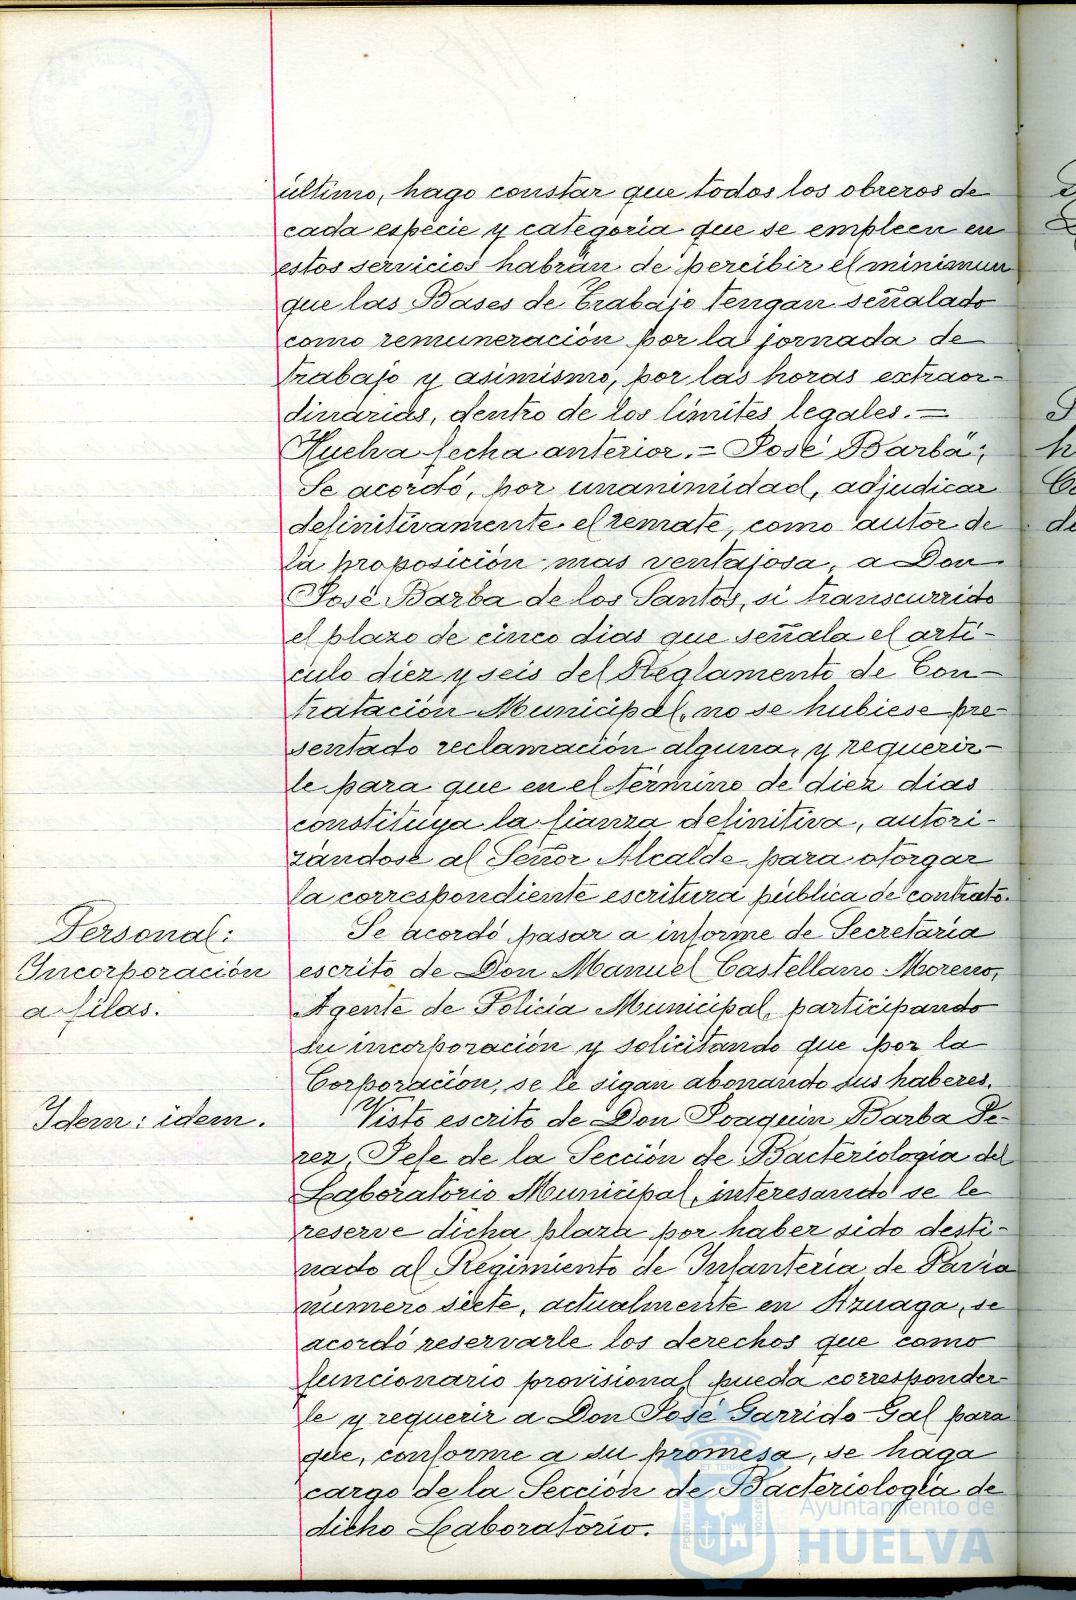 último, hago constar que todos los obreros de
cada especie y categoria que se empleen en
estos servicios habrán de percibir el minimun
que las Bases de Trabajo tengan señalado
como remuneración por la jornada de
trabajo y asimismo, por las horas extraor-
dinarias, dentro de los límites legales.=
Huelva fecha anterior.= José Barba";
Se acordó, por unanimidad, adjudicar
definitivamente el remate, como autor de
la proposición mas ventajosa, a Don
José Barba de los Santos, si transcurrido
el plazo de cinco dias que señala el artí-
culo diez y seis del Reglamento de Con-
tratación Municipal, no se hubiese pre-
sentado reclamación alguna, y requerir-
le para que en el término de diez dias
constituya la fianza definitiva, autori-
zándose al Señor Alcalde para otorgar
la correspondiente escritura pública de contrato.
Personal:
Incorporación
a filas.
Se acordó pasar a informe de Secretaría
escrito de Don Manuel Castellano Moreno,
Agente de Policía Municipal, participando
su incorporación y solicitando que por la
Corporación, se le sigan abonando sus haberes.
Idem: idem.
Visto escrito de Don Joaquin Barba Pe-
rez, Jefe de la Sección de Bacteriología del
Laboratorio Municipal, interesando se le
reserve dicha plaza por haber sido desti-
nado al Regimiento de Infantería de Pavía
número siete, actualmente en Azuaga, se
acordó reservarle los derechos que como
funcionario provisional pueda corresponder-
le y requerir a Don José Garrido Gal para
que, conforme a su promesa, se haga
cargo de la Sección de Bacteriología de
dicho Laboratorio.
Ayuntamiento de
HUELVA